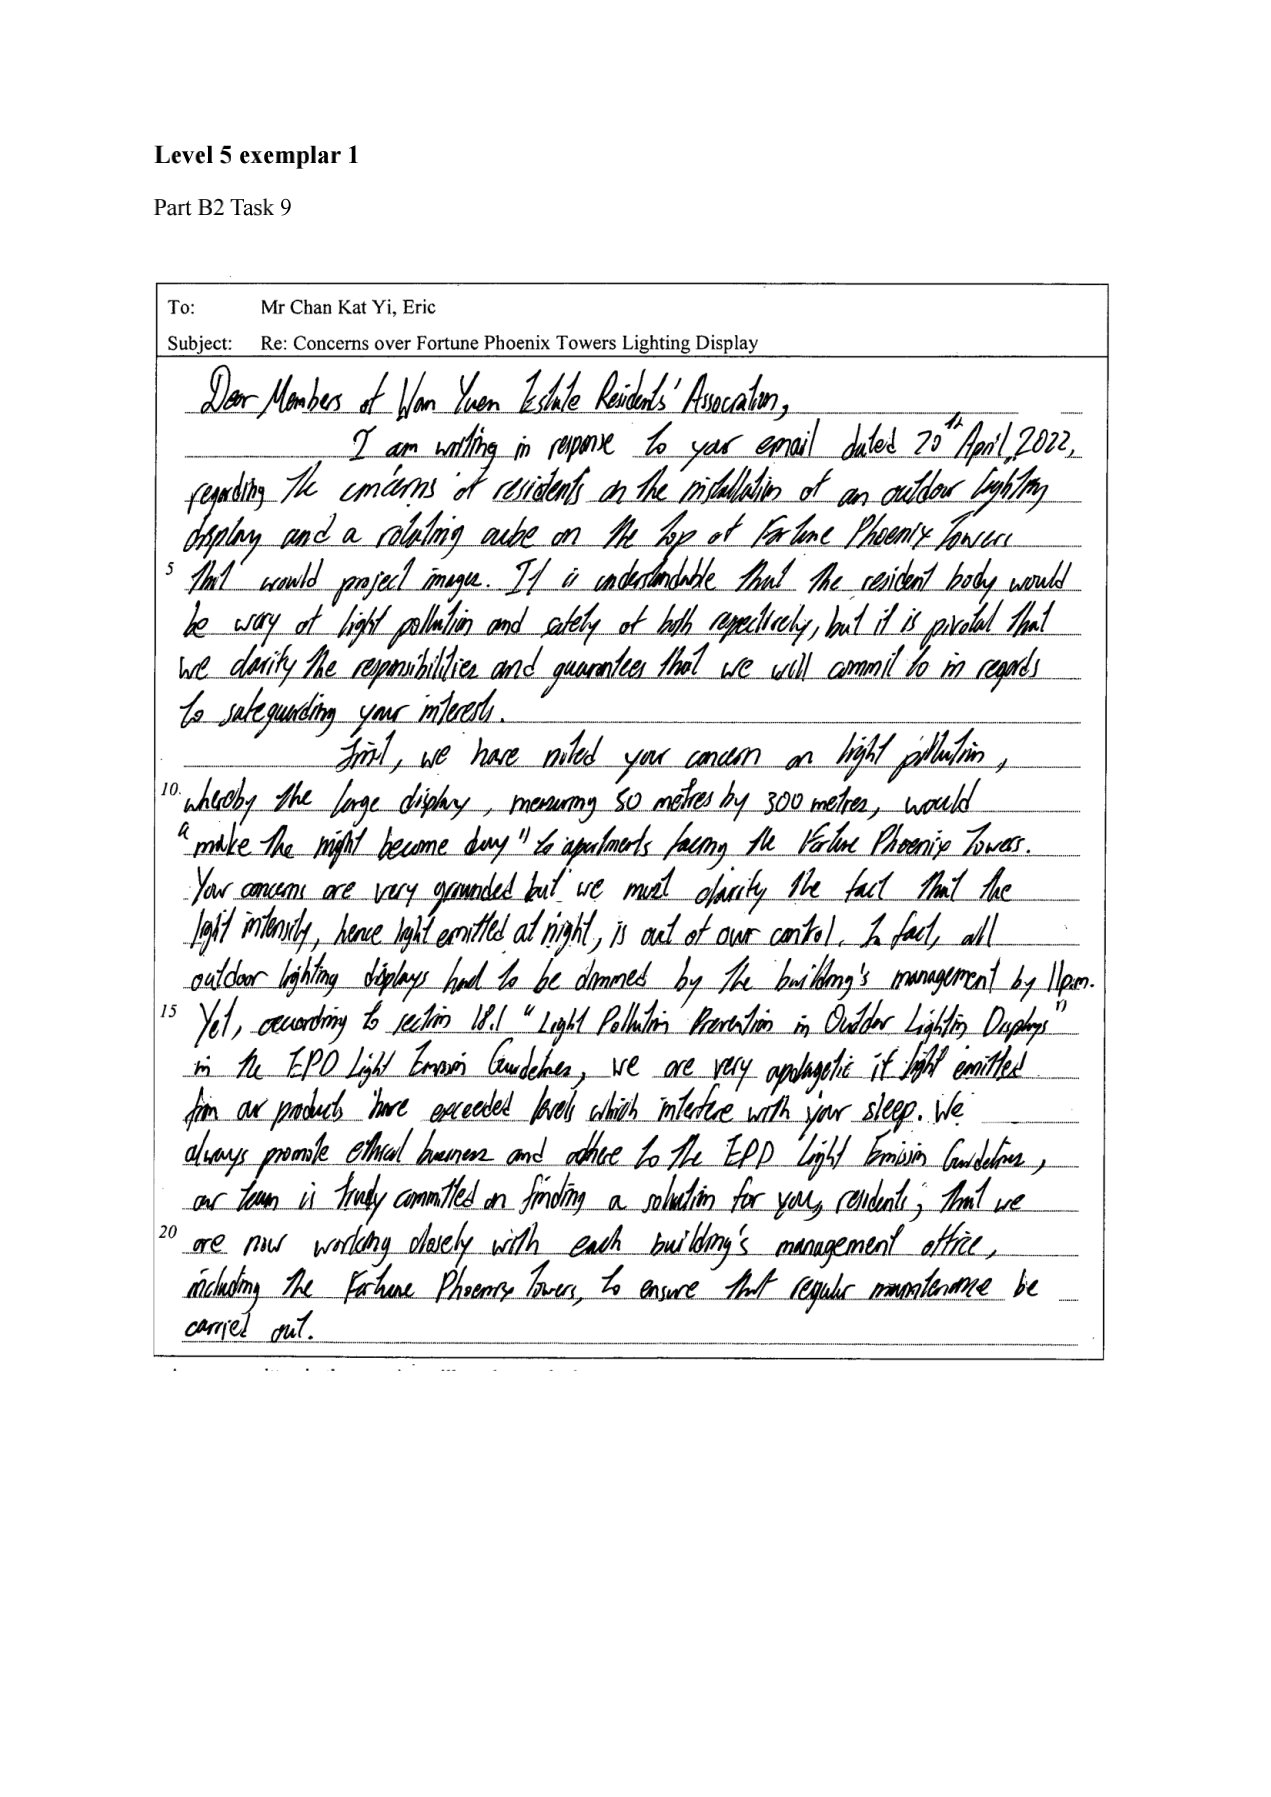 Level 5 exemplar 1
Part B2 Task 9
To: Mr Chan Kat Yi, Eric
Subject: Re: Concerns over Fortune Phoenix Towers Lighting Display
Dear Members of Wan Yuen Estate Residents' Association,
I am writing in response to your email dated 20th April, 2022,
regarding the concerns of residents on the installation of an outdoor lighting
display and a rotating cube on the top of Fortune Phoenix Towers
5 that would project images. It is understandable that the resident body would
be wary of light pollution and safety of both respectively, but it is pivotal that
we clarify the responsibilities and guarantees that we will commit to in regards
to safeguarding your interests.
First, we have noted your concern on light pollution,
10. whereby the large display, measuring 50 metres by 300 metres, would
"make the night become day" to apartments facing the Fortune Phoenix Towers.
Your concerns are very grounded but we must clarify the fact that the
light intensity, hence light emitted at night, is out of our control. In fact, all
outdoor lighting displays had to be dimmed by the building's management by 11p.m.
15 Yet, according to section 18.1 "Light Pollution Prevention in Outdoor Lighting Displays"
in the EPD Light Emission Guidelines, we are very apologetic if light emitted
from our products have exceeded levels which interfere with your sleep. We
always promote ethical business and adhere to the EPD Light Emission Guidelines,
our team is truly committed on finding a solution for you, residents; that we
20 are now working closely with each building's management office,
including the Fortune Phoenix Towers, to ensure that regular maintenance be
carried out.